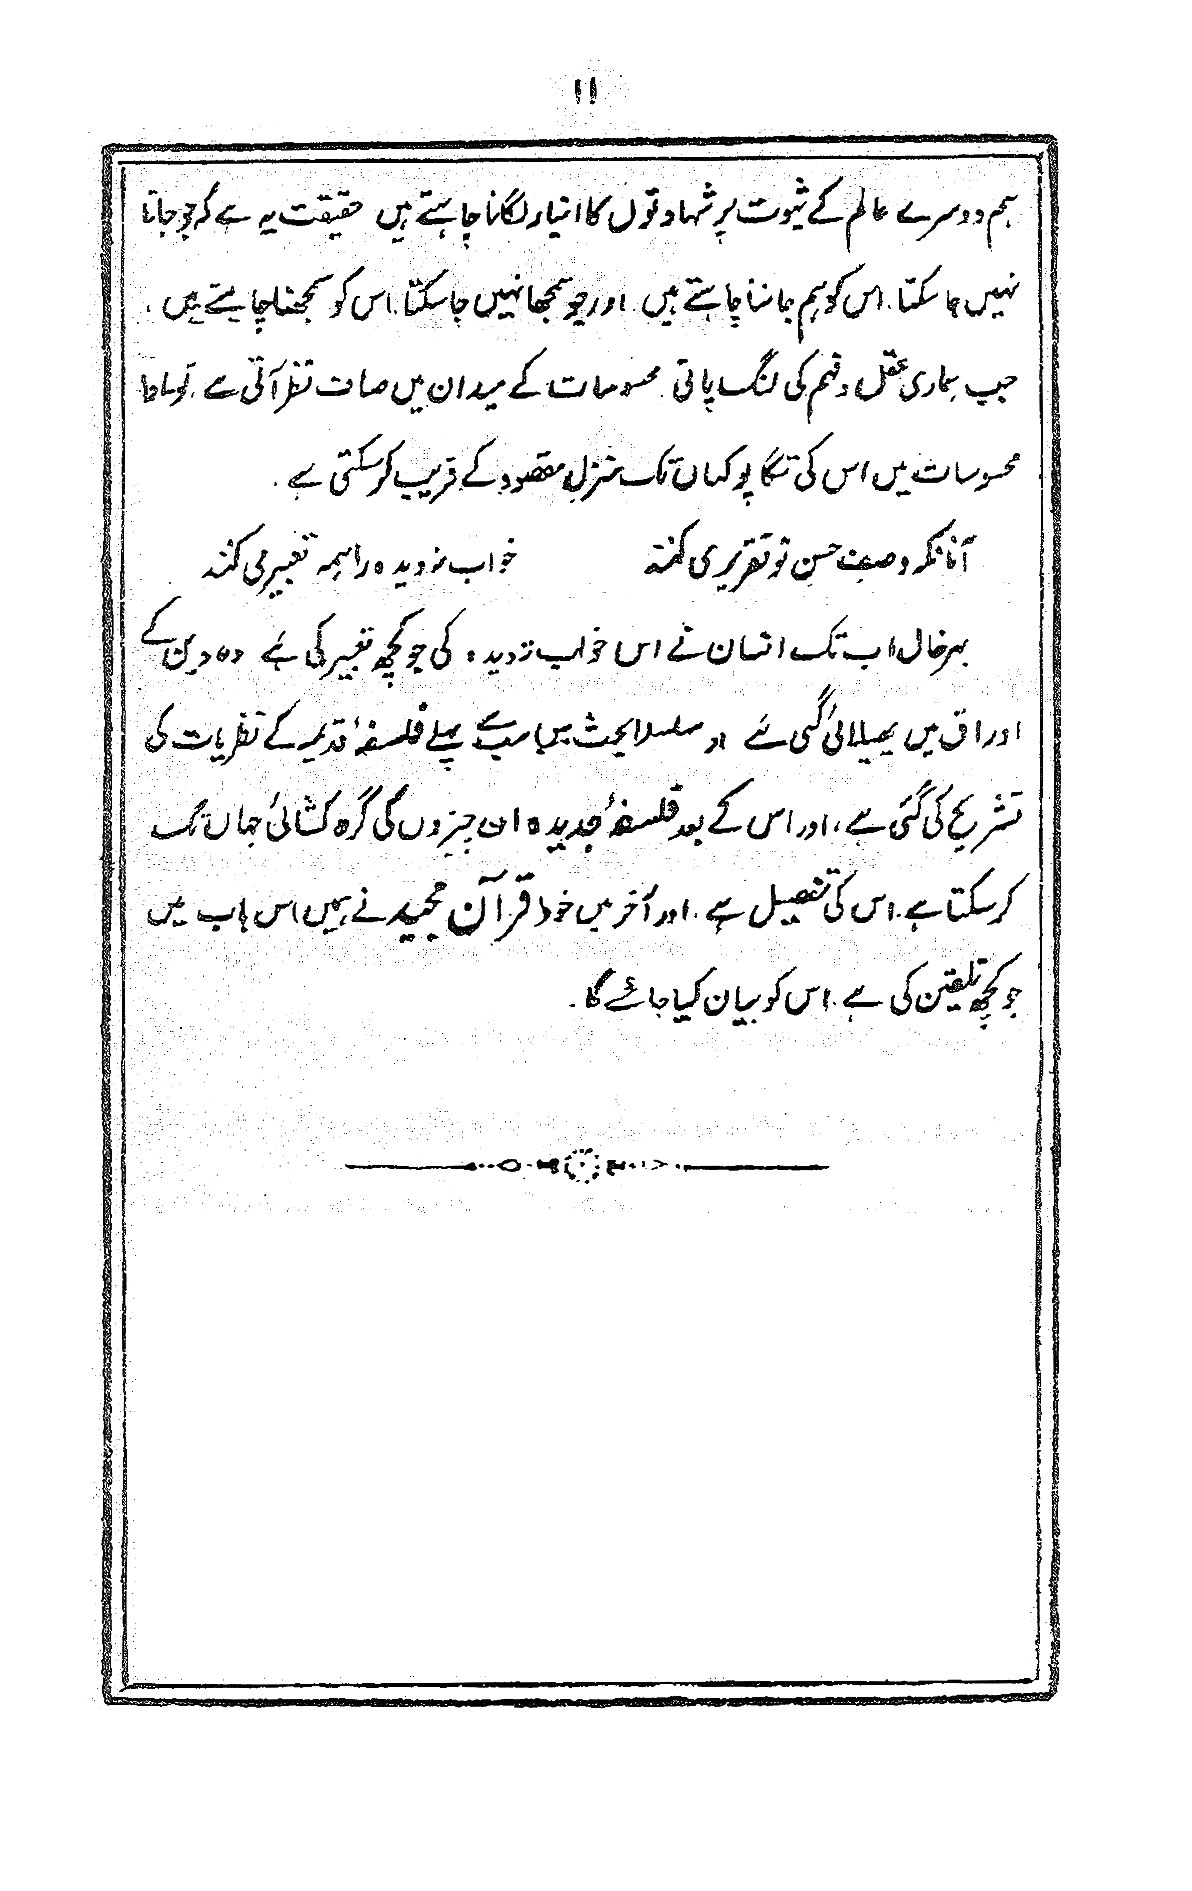 ۱۱
ہم دوسرے عالم کے ثبوت پر شہادتوں کا انبار لگانا چاہتے ہیں حقیقت یہ ہے کہ جو جانا
نہیں جا سکتا، اس کو ہم جاننا چاہتے ہیں اور جو سمجھا نہیں جا سکتا، اس کو سمجھنا چاہتے ہیں ۔
جب ہماری عقل و فہم کی لنگ پائی محسوسات کے میدان میں صاف نظر آتی ہے ، تو ماورا
محسوسات میں اس کی تگاپو کہاں تک منزلِ مقصود کے قریب کر سکتی ہے ۔
آنانکہ وصف حسن تو تقریر می کنند خواب ندیدہ را ہمہ تعبیر می کنند
بہر حال اب تک انسان نے اس خواب ندیدہ کی جو کچھ تعبیر کی ہے وہ دین کے
اوراق میں پھیلائی گئی ہے اور سلسلۂ بحث میں سب سے پہلے فلسفۂ قدیمہ کے نظریات کی
تشریح کی گئی ہے، اور اس کے بعد فلسفۂ جدیدہ ان چیزوں کی گرہ کشائی جہاں تک
کر سکتا ہے، اس کی تفصیل ہے، اور آخر میں خود قرآن مجید نے ہمیں اس باب میں
جو کچھ تلقین کی ہے، اس کو بیان کیا جائے گا ۔